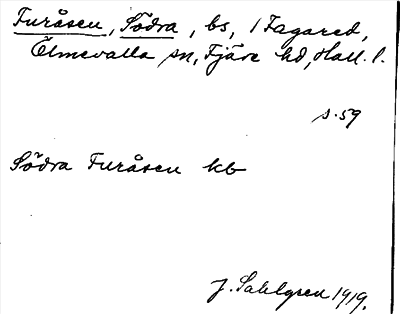 Furåsen, Södra, bs, / Fagared,
Ölmevalla sn, Fjäre hd, Hall. l.
s. 59
Södra Furåsen kb
J. Sahlgren 1919.